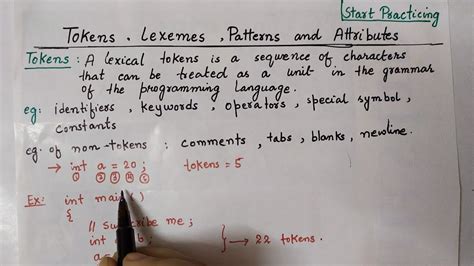 Start Practicing
Tokens, Lexemes, Patterns and Attributes
Tokens : A lexical tokens is a sequence of characters
that can be treated as a unit in the grammar
of the programming language.
eg: identifiers, keywords, operators, special symbol,
constants
eg. of non-tokens : comments, tabs, blanks, newline.
→ int a = 20 ; tokens = 5
① ② ③ ④ ⑤
Ex: int main()
{
// Subscribe me ;
int b ; } → 22 tokens.